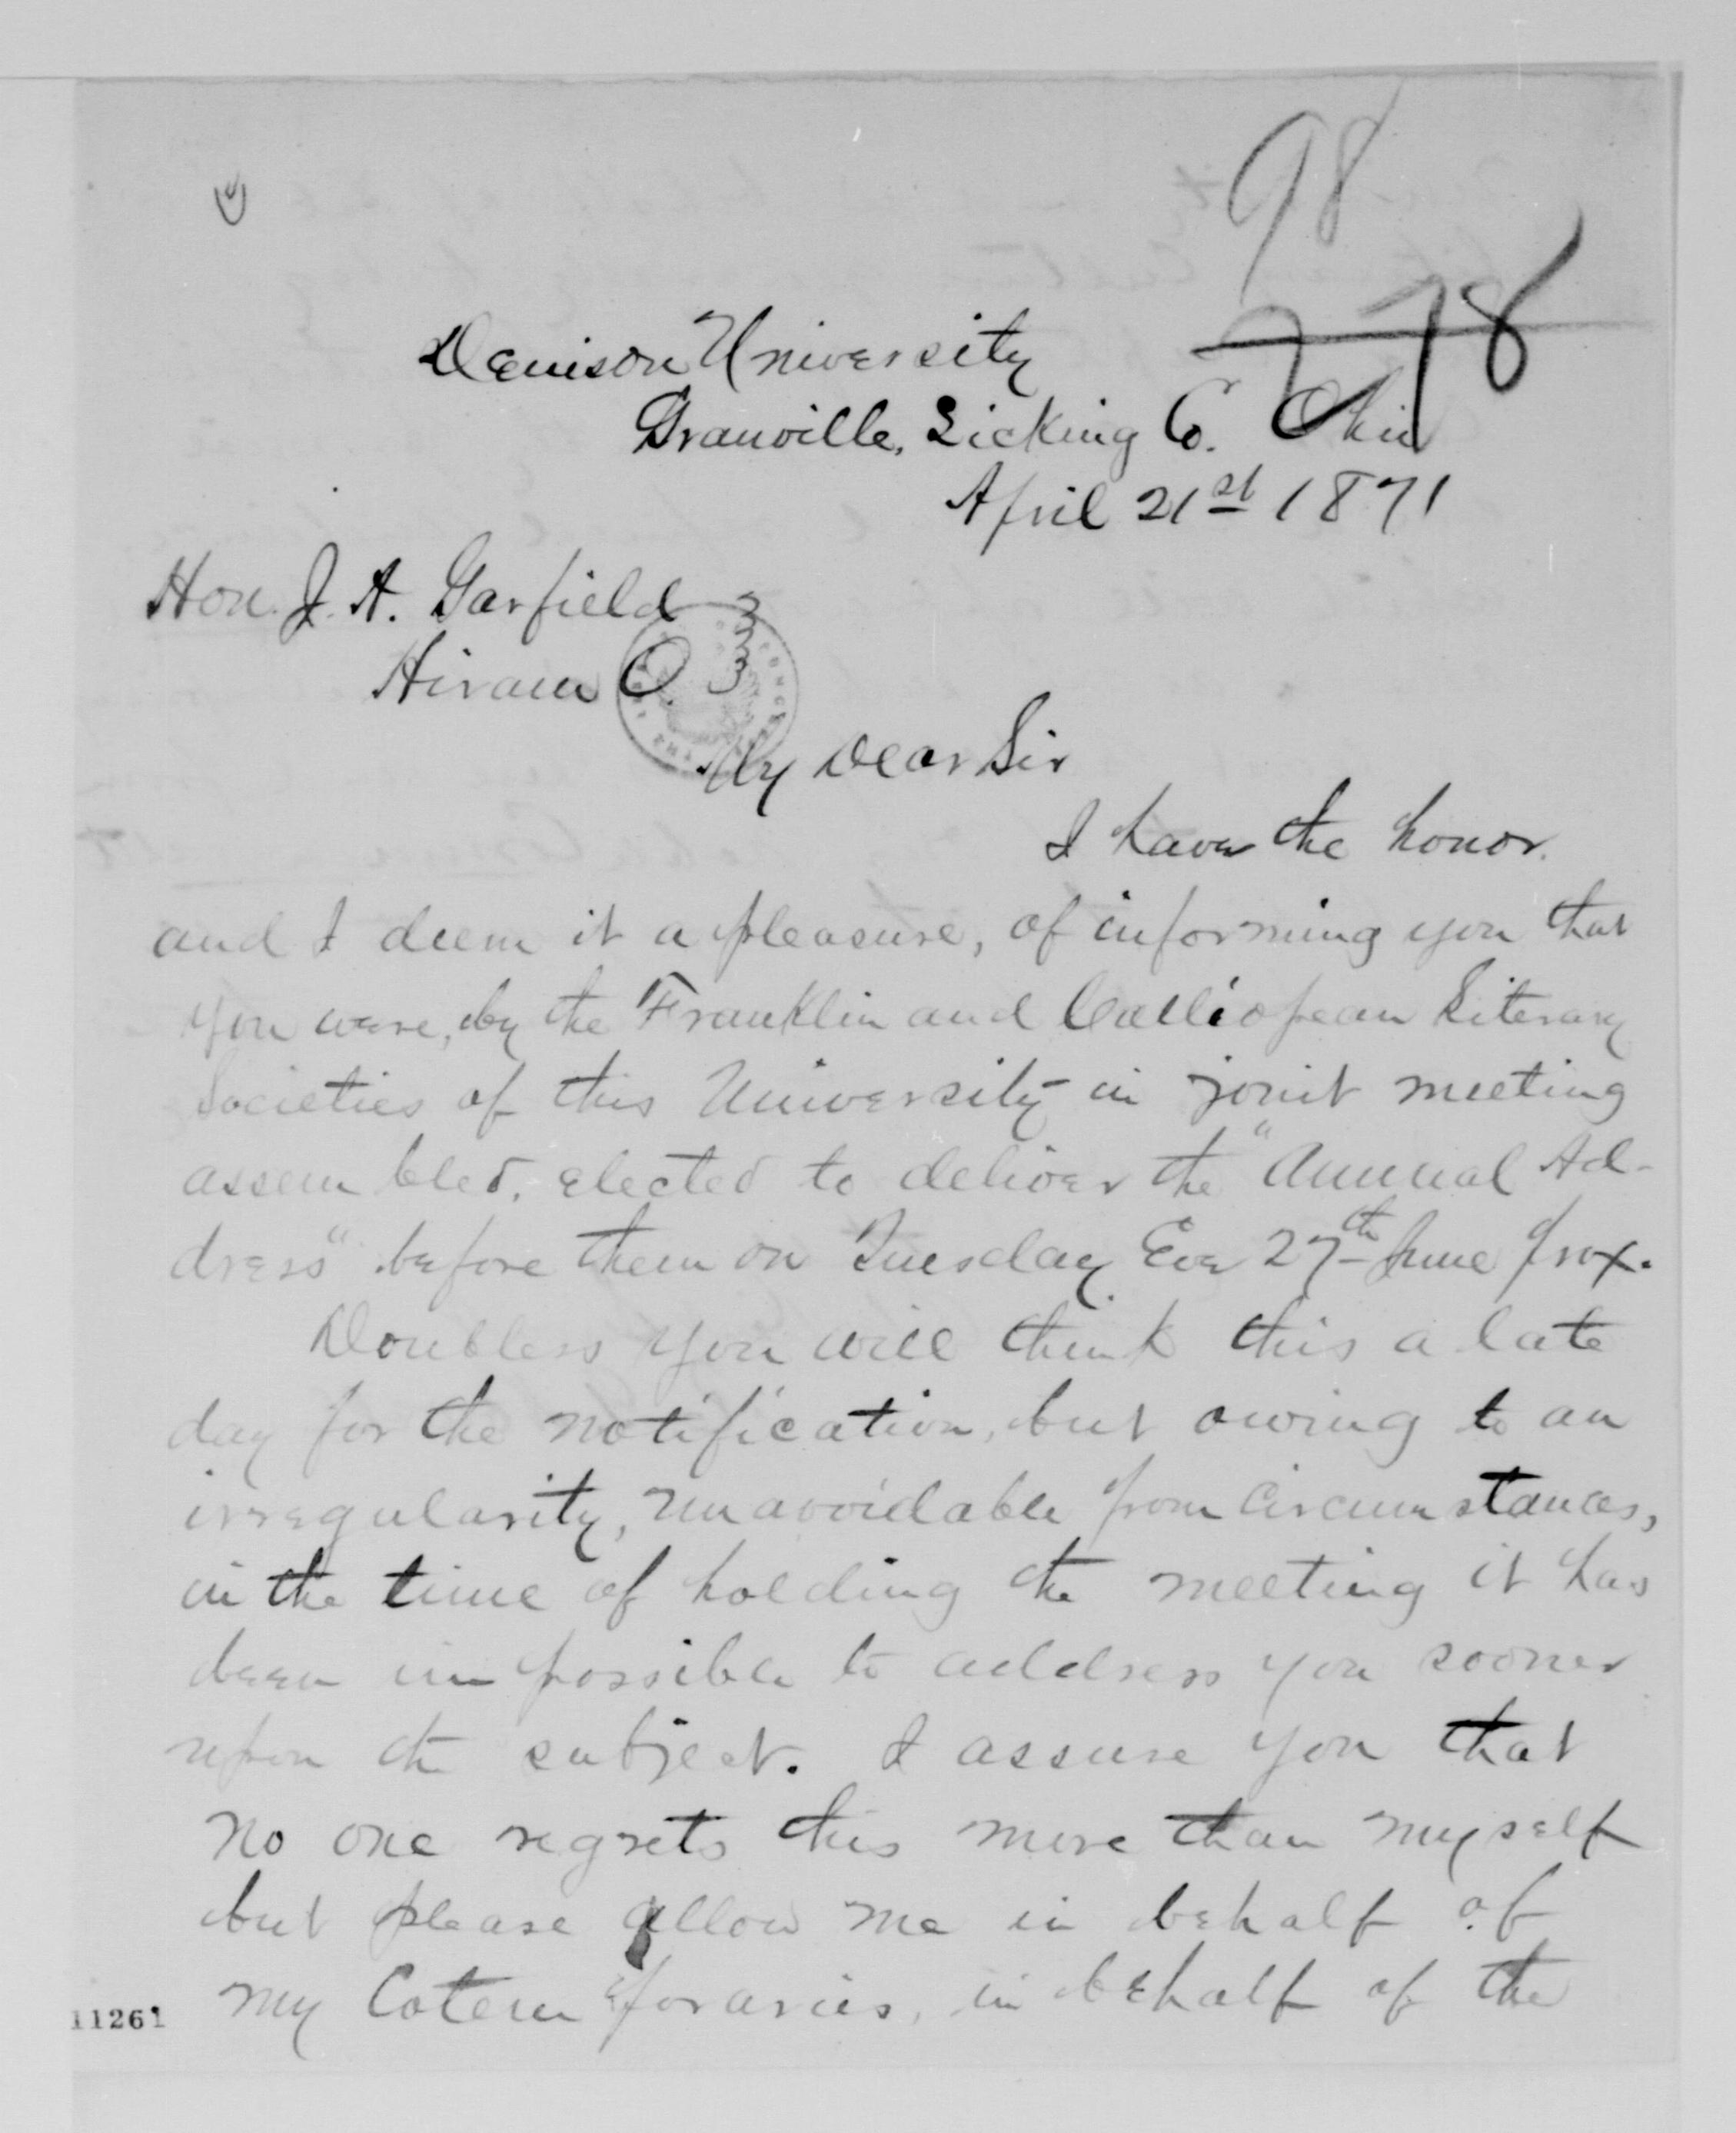 98
278
Denison University
Granville, Licking Co. Ohio
April 21st 1871
Hon. J. A. Garfield
Hiram O.
My Dear Sir
I have the honor.
and I deem it a pleasure, of informing you that
you were, by the Franklin and Calliopean Literary
Societies of this University in joint meeting
assembled, elected to deliver the "Annual Ad-
dress" before them on Tuesday Eve 27th June prox.
Doubless you will think this a late
day for the notification, but owing to an
irregularity, unavoidable from circumstances,
in the time of holding the meeting it has
been impossible to address you sooner
upon the subject. I assure you that
no one regrets this more than myself
but please allow me in behalf of
my Cotemporaries, in behalf of the
11261